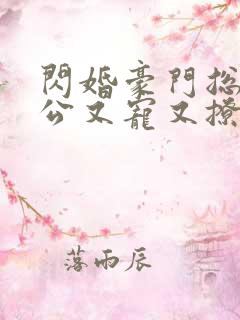 閃婚豪門总
公又寵又撩
落雨辰